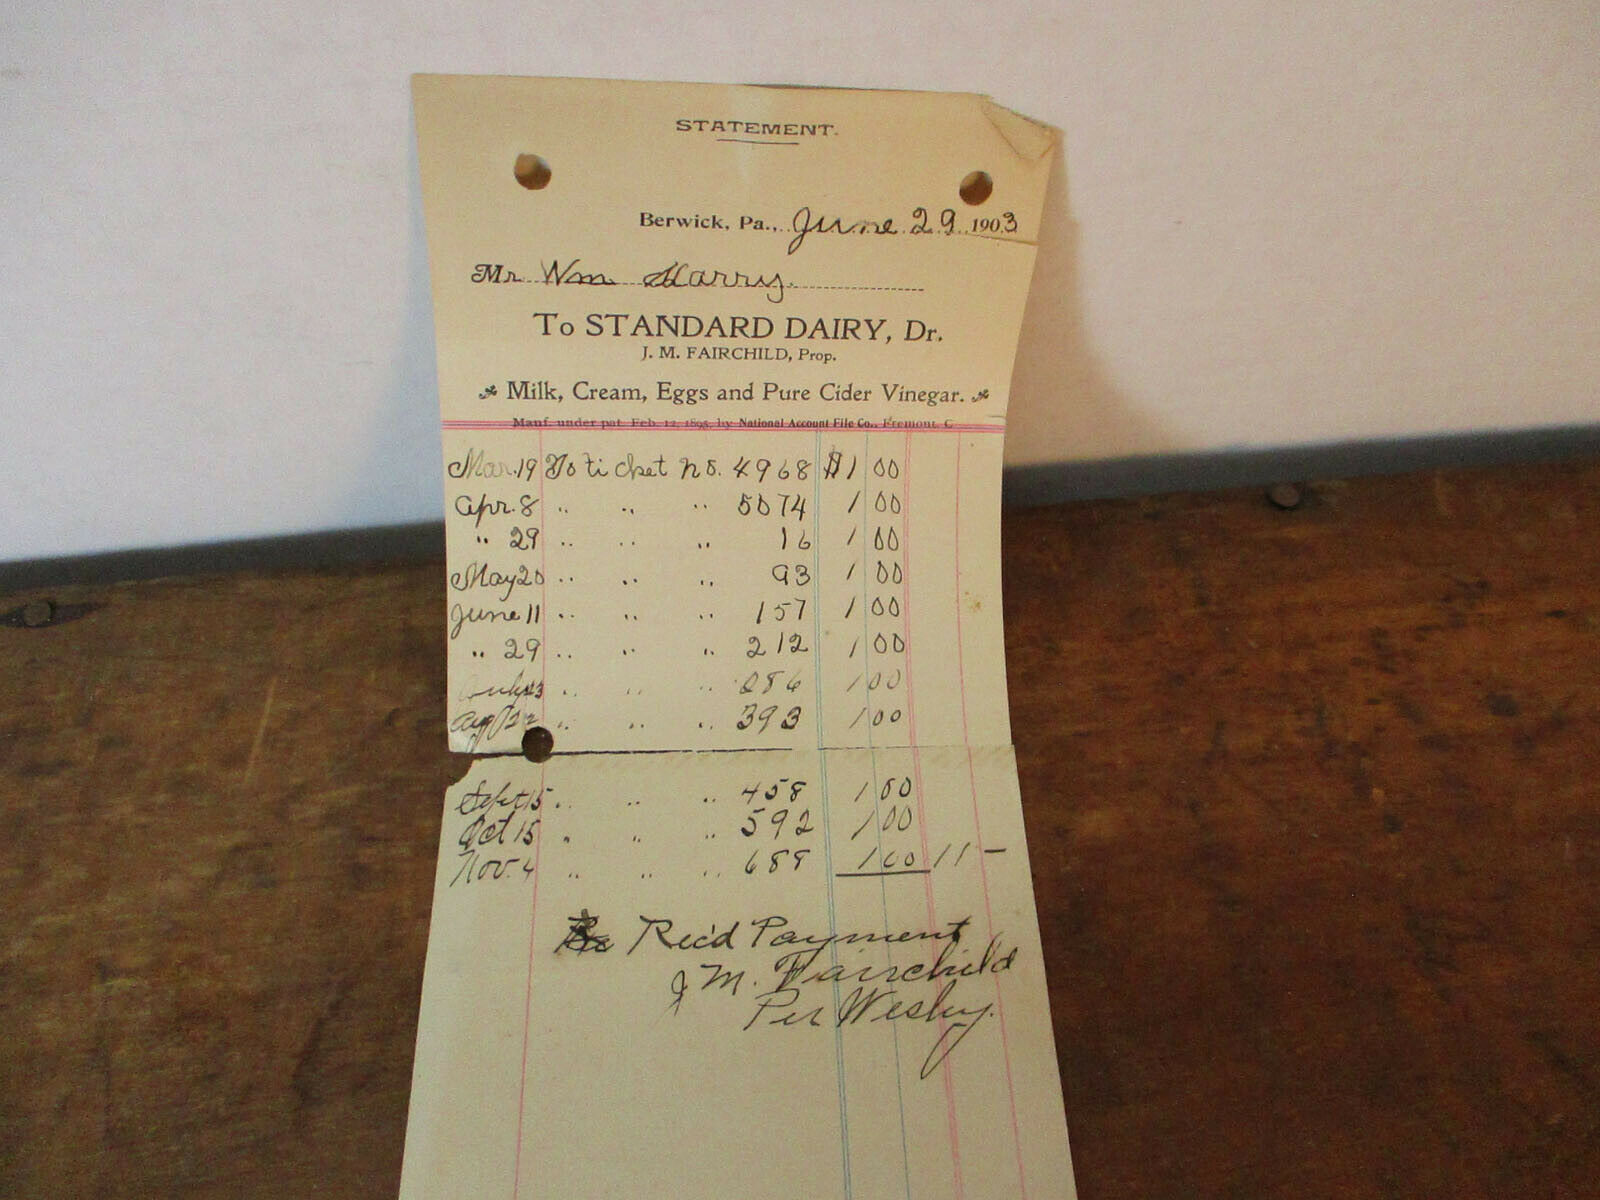 STATEMENT.
Berwick, Pa., June 29 1903
Mr Wm Harry.
To STANDARD DAIRY, Dr.
J. M. FAIRCHILD, Prop.
Milk, Cream, Eggs and Pure Cider Vinegar.
Manf. under pat. Feb. 12, 1895, by National Account File Co., Fremont, O
Mar. 19 To ticket no. 4968 $1 00
Apr. 8 " " " 5074 1 00
" 29 " " " 16 1 00
May 20 " " " 93 1 00
June 11 " " " 157 1 00
" 29 " " " 212 1 00
" " " 286 1 00
Aug 22 " " " 393 1 00
Sept 15 " " " 458 1 00
Oct 15 " " " 592 1 00
Nov. 4 " " " 689 1 00 11 –
Rec'd Payment
J M. Fairchild
Per Wesley.